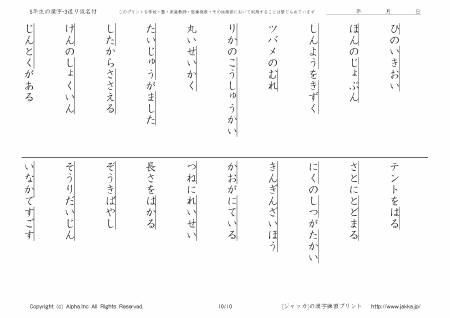 5年生の漢字-3送り仮名付
このプリントを学校・塾・家庭教師・医療機関・その他施設において利用することは禁じられています
年 月 日
ひのいきおい
ほんのじょぶん
しんようをきずく
ツバメのむれ
りかのこうしゅうかい
丸いせいかく
たいじゅうがました
したからささえる
けんのしょくいん
じんとくがある
テントをはる
さとにとどまる
にくのしつがたかい
きんぎんざいほう
かおがにている
つねにれいせい
長さをはかる
ぞうきばやし
そうりだいじん
いなかですごす
Copyright (c) Alpha.Inc All Rights Reserved.
10/10
[ジャッカ]の漢字練習プリント http://www.jakka.jp/